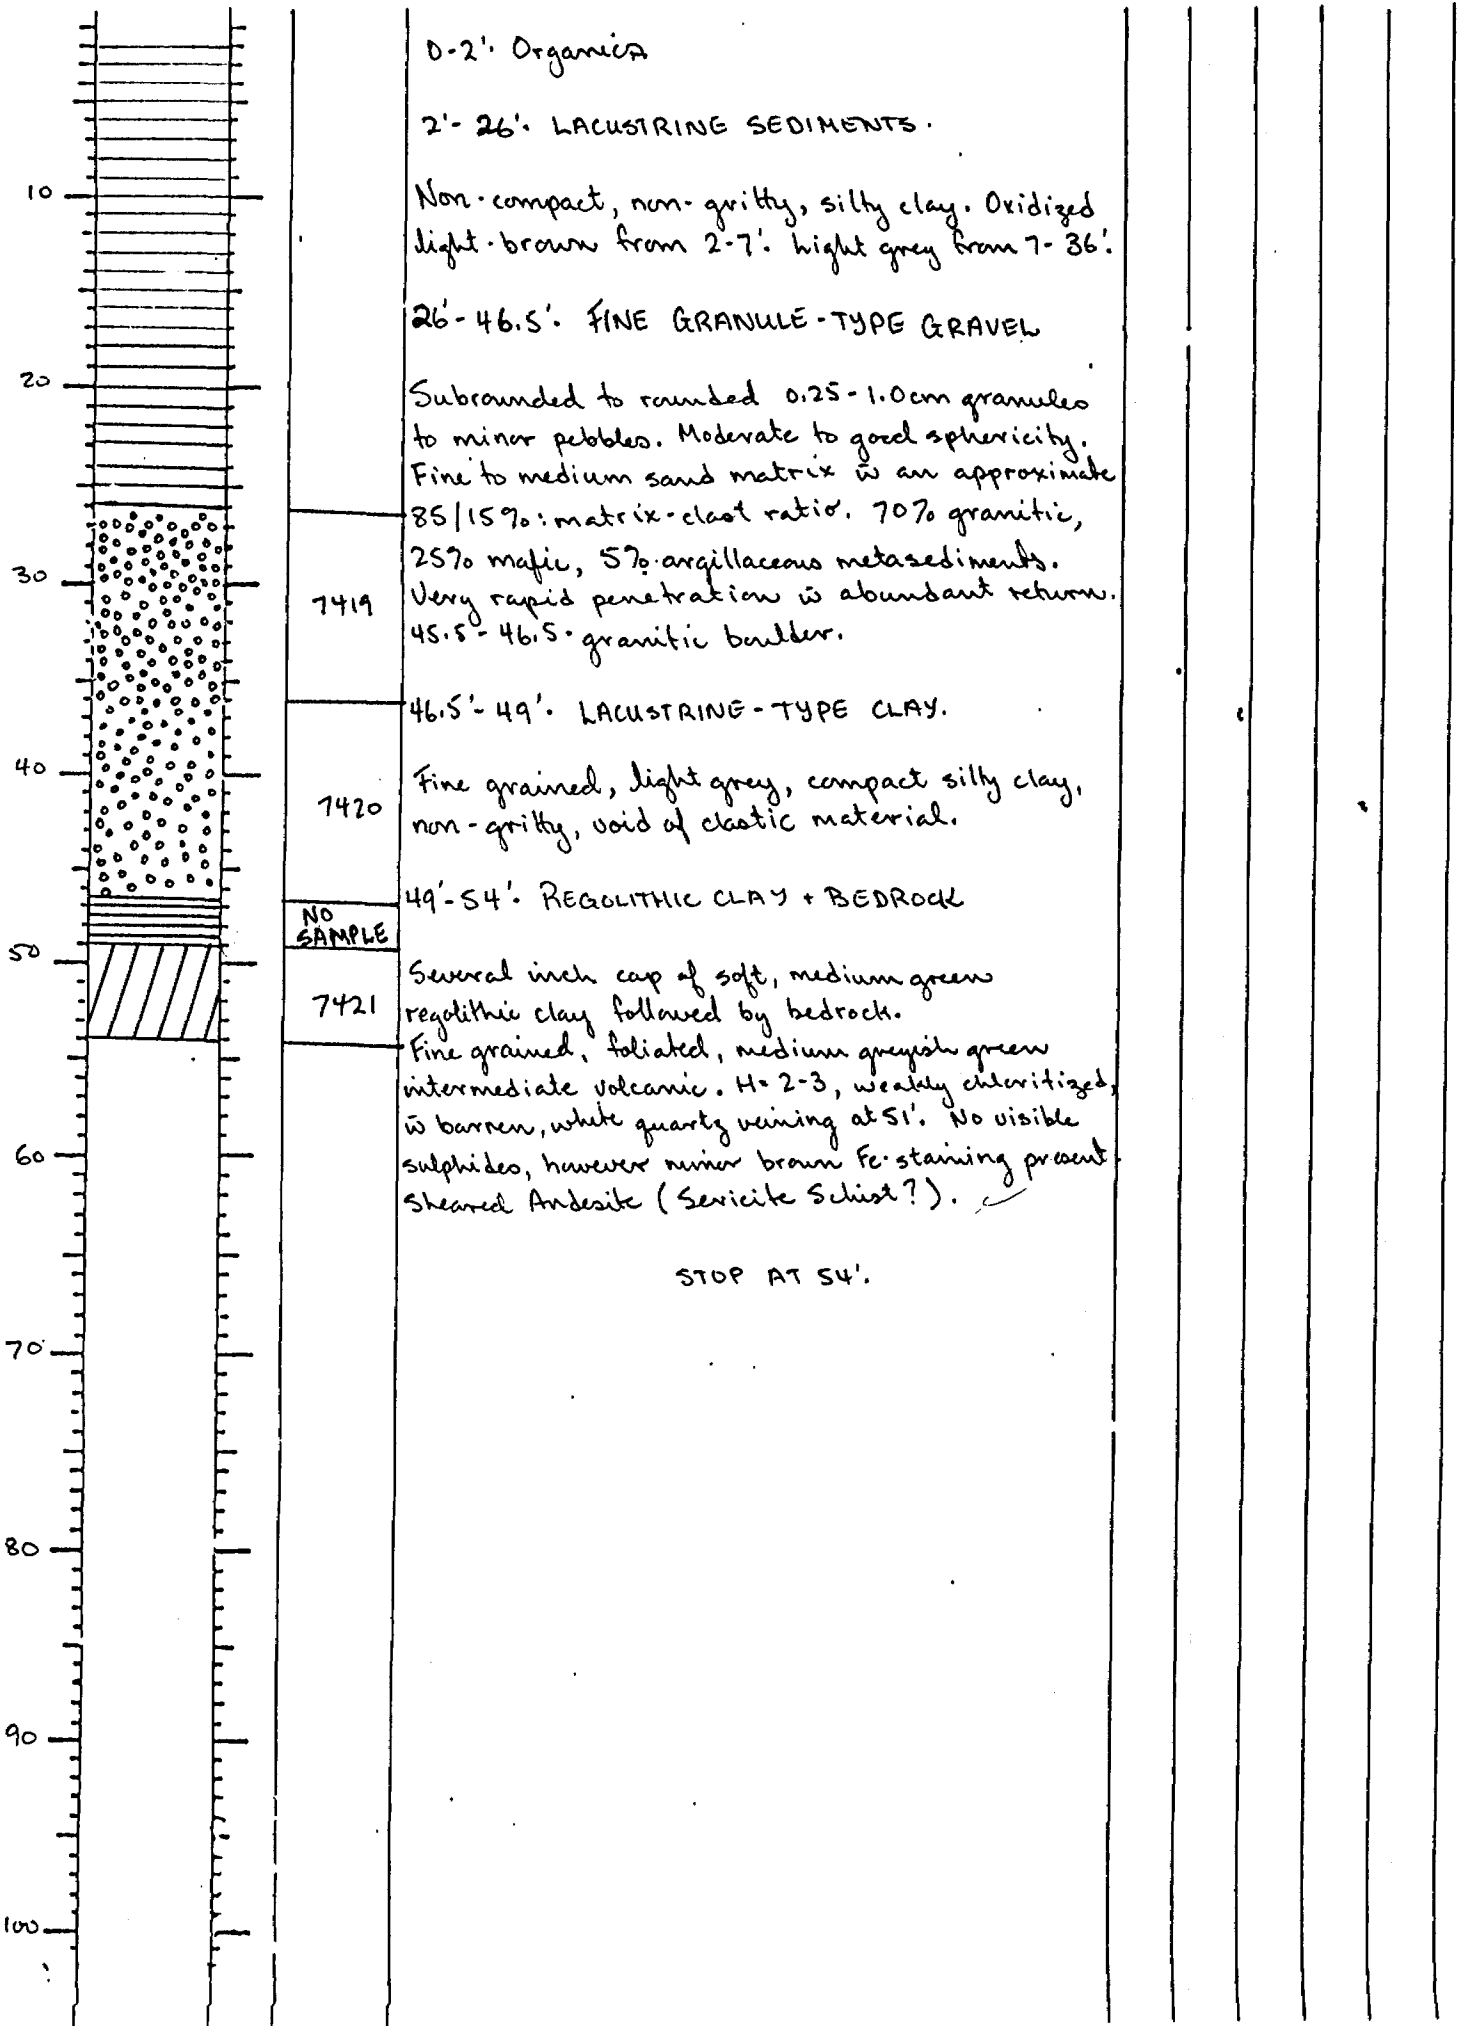 0-2'. Organics
2'-26'. LACUSTRINE SEDIMENTS.
10
Non-compact, non-gritty, silty clay. Oxidized
light-brown from 2-7'. Light grey from 7-36'.
26'-46.5'. FINE GRANULE-TYPE GRAVEL
20
Subrounded to rounded 0.25-1.0cm granules
to minor pebbles. Moderate to good sphericity.
Fine to medium sand matrix w̄ an approximate
85/15%: matrix-clast ratio. 70% granitic,
25% mafic, 5% argillaceous metasediments.
30
7419
Very rapid penetration w̄ abundant return.
45.5-46.5. granitic boulder.
46.5'-49'. LACUSTRINE-TYPE CLAY.
40
Fine grained, light grey, compact silty clay,
7420
non-gritty, void of clastic material.
49'-54'. REGOLITHIC CLAY + BEDROCK
NO
SAMPLE
50
Several inch cap of soft, medium green
7421
regolithic clay followed by bedrock.
Fine grained, foliated, medium greyish green
intermediate volcanic. H= 2-3, weakly chloritized,
w̄ barren, white quartz veining at 51'. No visible
60
sulphides, however minor brown Fe-staining present.
Sheared Andesite (Sericite Schist?).
STOP AT 54'.
70
80
90
100